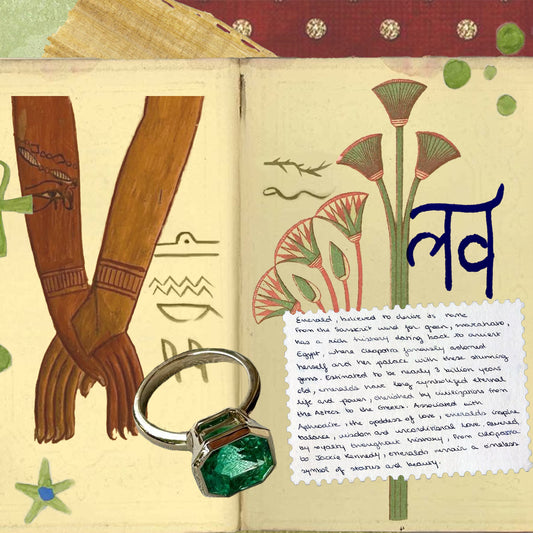 लव
Emerald, believed to derive its name
from the Sanskrit word for green, marakata,
has a rich history dating back to ancient
Egypt, where Cleopatra famously adorned
herself and her palace with these stunning
gems. Estimated to be nearly 3 billion years
old, emeralds have long symbolized eternal
life and power, cherished by civilizations from
the Aztecs to the Greeks. Associated with
Aphrodite, the goddess of love, emeralds inspire
balance, wisdom and unconditional love. Revered
by royalty throughout history, from Cleopatra
to Jackie Kennedy, emeralds remain a timeless
symbol of status and beauty.